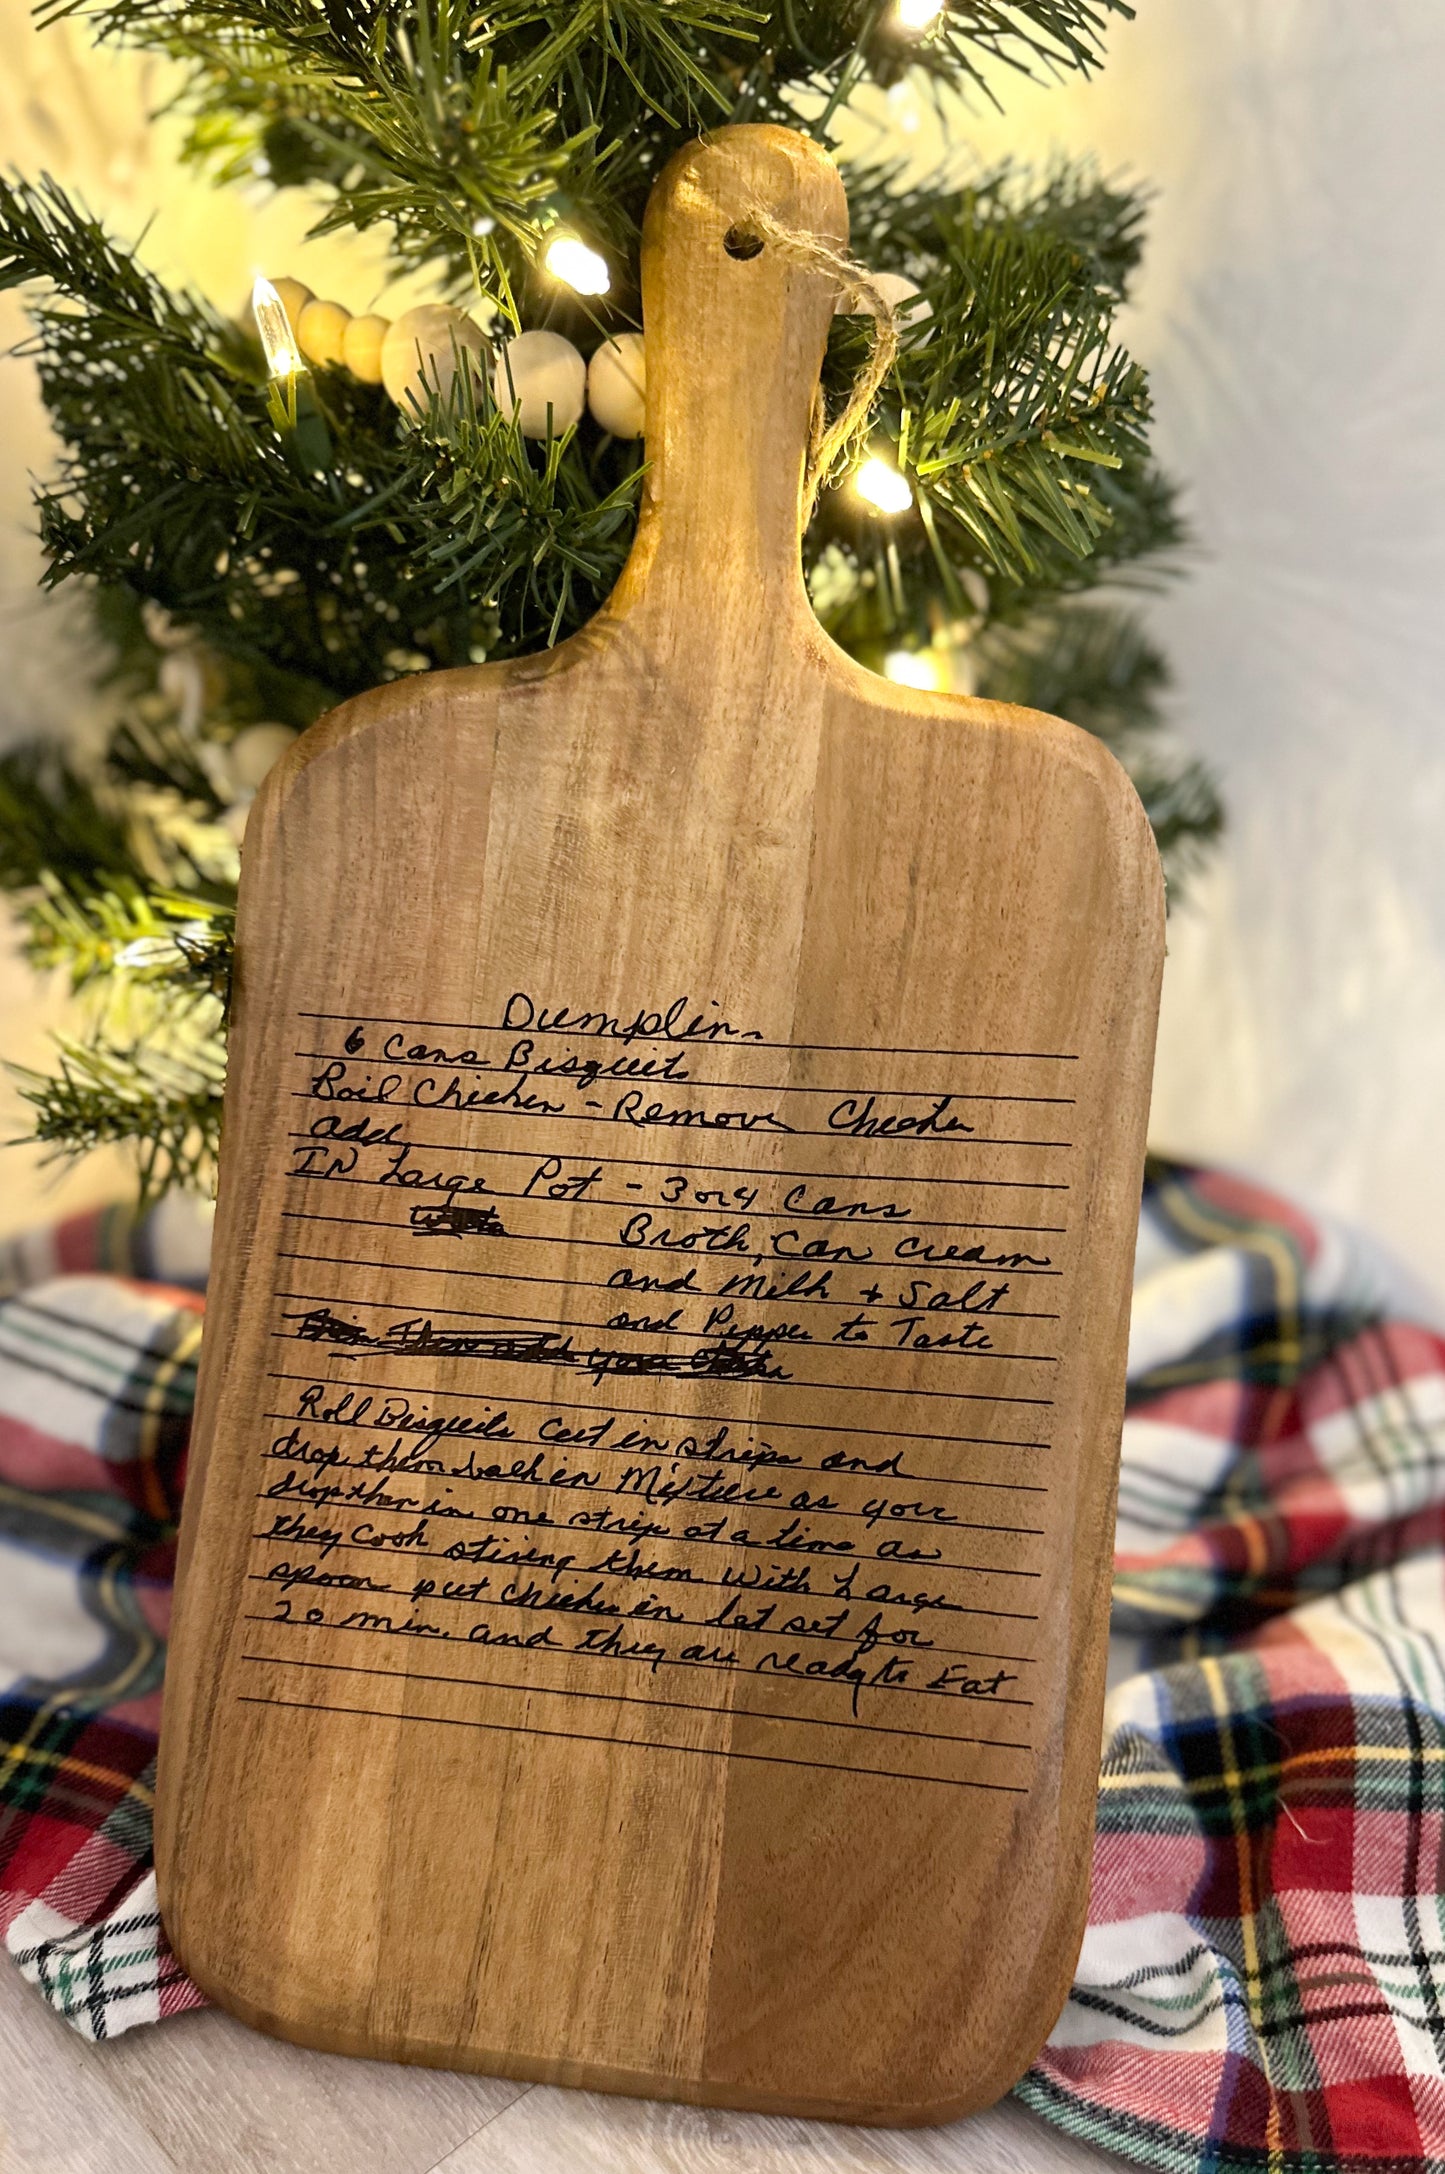 Dumplin
6 Cans Bisquits
Boil Chicken - Remove Chicken
add
IN Large Pot - 3 or 4 Cans
Broth, Can Cream
and Milk + Salt
and Pepper to Taste
Roll Bisquits Cut in strips and
drop them back in Mixture as your
drop them in one strip at a time as
they Cook stiring them with Large
spoon put Chicken in let set for
20 min. and they are ready to Eat